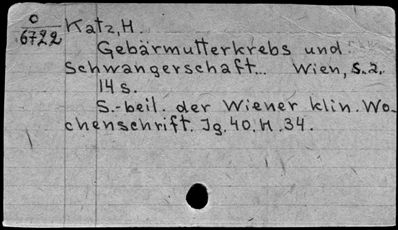 O
6722
Katz, H.
Gebärmutterkrebs und
Schwangerschaft... Wien, s.a.
14 s.
S.-beil. der Wiener klin. Wo-
chenschrift. Jg. 40. H. 34.